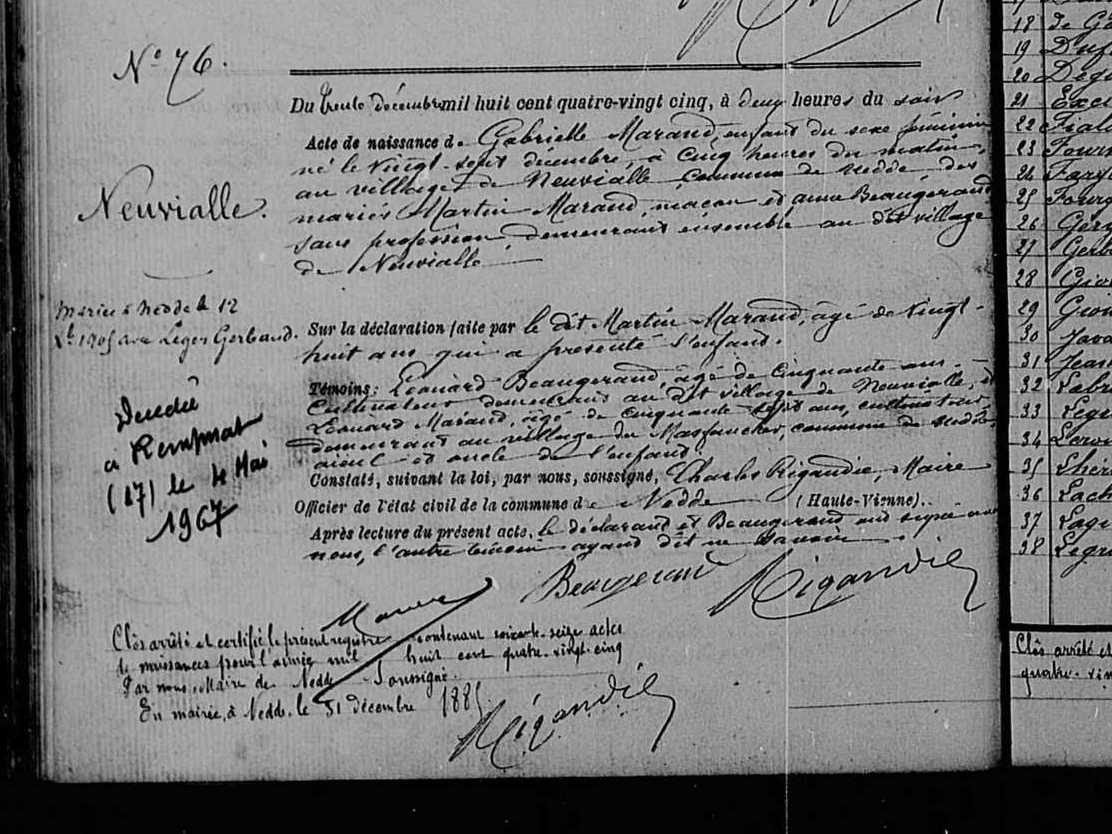 N° 76.
Du trente décembre mil huit cent quatre-vingt cinq, à deux heures du soir
Acte de naissance de Gabrielle Marand, enfant du sexe féminin
né le vingt-sept décembre, à cinq heures du matin,
au village de Neuvialle commune de Nedde, des
mariés Martin Marand, maçon et anne Beaugerand
sans profession, demeurant ensemble au dit village
de Neuvialle
Neuvialle.
Sur la déclaration faite par le dit Martin Marand, âgé de vingt-
huit ans qui a présenté l'enfant.
Mariée à Nedde le 12
1905 avec Léger Gerbaud.
Témoins: Léonard Beaugerand, âgé de cinquante ans
cultivateur demeurant au dit village de Neuvialle, et
Léonard Marand, âgé de cinquante sept ans, cultivateur
demeurant au village du Masfaucher, commune de Nedde,
aieul et oncle de l'enfant.
Décédée
à Rempnat
(87) le 4 Mai
1967
Constaté, suivant la loi, par nous, soussigné, Charles Rigaudie, Maire
Officier de l'état civil de la commune de Nedde (Haute-Vienne).
Après lecture du présent acte, le déclarant et Beaugerand ont signé avec
nous, l'autre témoin ayant dit ne savoir.
Beaugerand Rigaudie
Clôs arrêté et certifié le présent registre contenant soixante-seize actes
de naissances pour l'année mil huit cent quatre-vingt-cinq
Par nous, Maire de Nedde Soussigné.
En mairie, à Nedde, le 31 décembre 1885
Rigaudie
18 de
19
20
21
22
23
24
25
26
27
28
29
30
31 Jean
32
33
34
35
36
37
38
Clôs arrêté et
quatre-vin